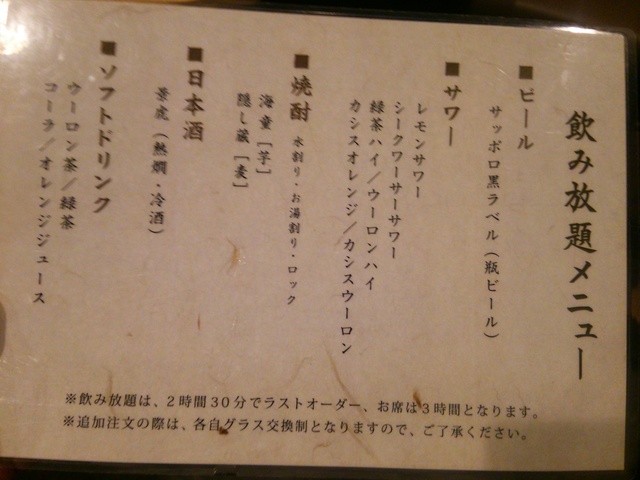 飲み放題メニュー
■ビール
サッポロ黒ラベル（瓶ビール）
■サワー
レモンサワー
シークワーサーサワー
緑茶ハイ／ウーロンハイ
カシスオレンジ／カシスウーロン
■焼酎 水割り・お湯割り・ロック
海童［芋］
隠し蔵［麦］
■日本酒
景虎（熱燗・冷酒）
■ソフトドリンク
ウーロン茶／緑茶
コーラ／オレンジジュース
※飲み放題は、２時間３０分でラストオーダー、お席は３時間となります。
※追加注文の際は、各自グラス交換制となりますので、ご了承ください。